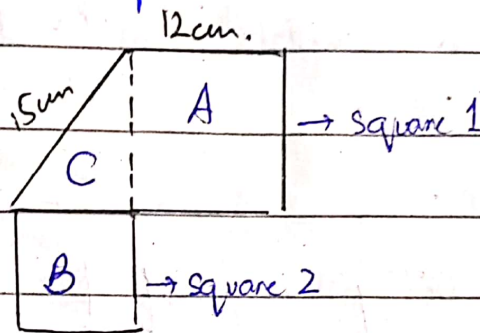 12cm.
15cm
A → square 1
C
B → square 2